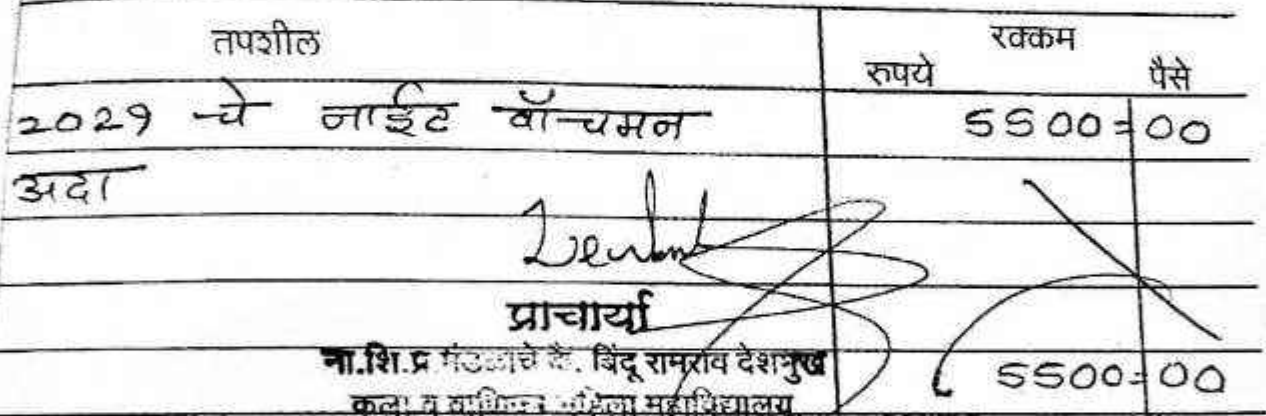 तपशील रक्कम
रुपये पैसे
२०२१ चे नाईट वॉचमन 5500=00
अदा
प्राचार्या
ना.शि.प्र मंडळाचे कै. बिंदू रामराव देशमुख 5500=00
कला व वाणिज्य महिला महाविद्यालय